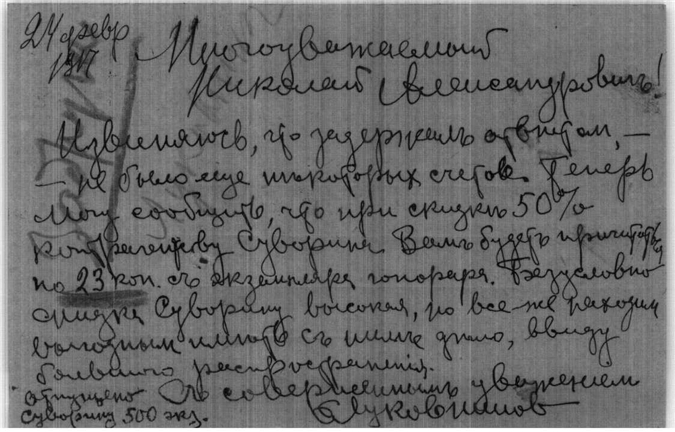 24 февр
1917
Многоуважаемый
Николай Александровичъ!
Извиняюсь, что задержалъ отвѣтом, —
— не было еще нѣкоторых счетов. Теперь
могу сообщить, что при скидкѣ 50%
контрагентству Суворина Вамъ будетъ причитаться
по 23 коп. съ экземпляра гонорара. Безусловно
скидка Суворину высокая, но все-же находим
выгодным имѣть съ нимъ дѣло, ввиду
большого распространенія.
Съ совершеннымъ уважением
отпущено
Суворину 500 экз.
Луковников